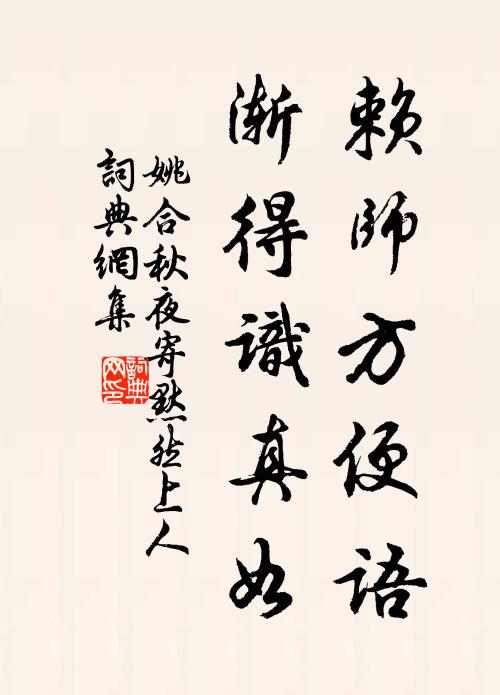 賴師方便語
漸得識真如
姚合秋夜寄默然上人
詞典網集
詞典網印